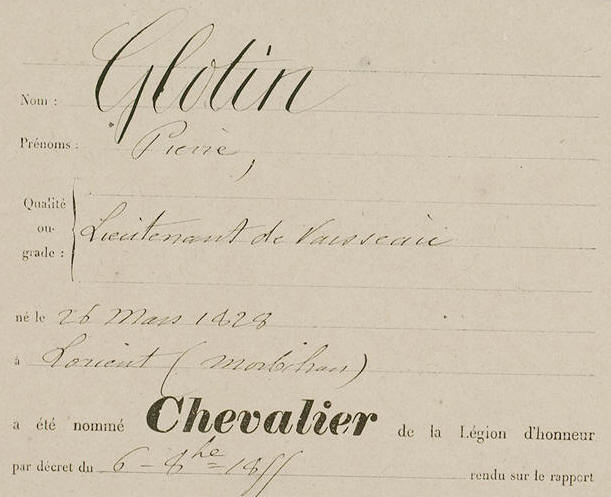 Nom : Glotin
Prénoms : Pierre,
Qualité
ou
grade :
Lieutenant de Vaisseau
né le 26 Mars 1828
à Lorient (Morbihan)
a été nommé Chevalier de la Légion d'honneur
par décret du 6 - 8bre = 1855 rendu sur le rapport